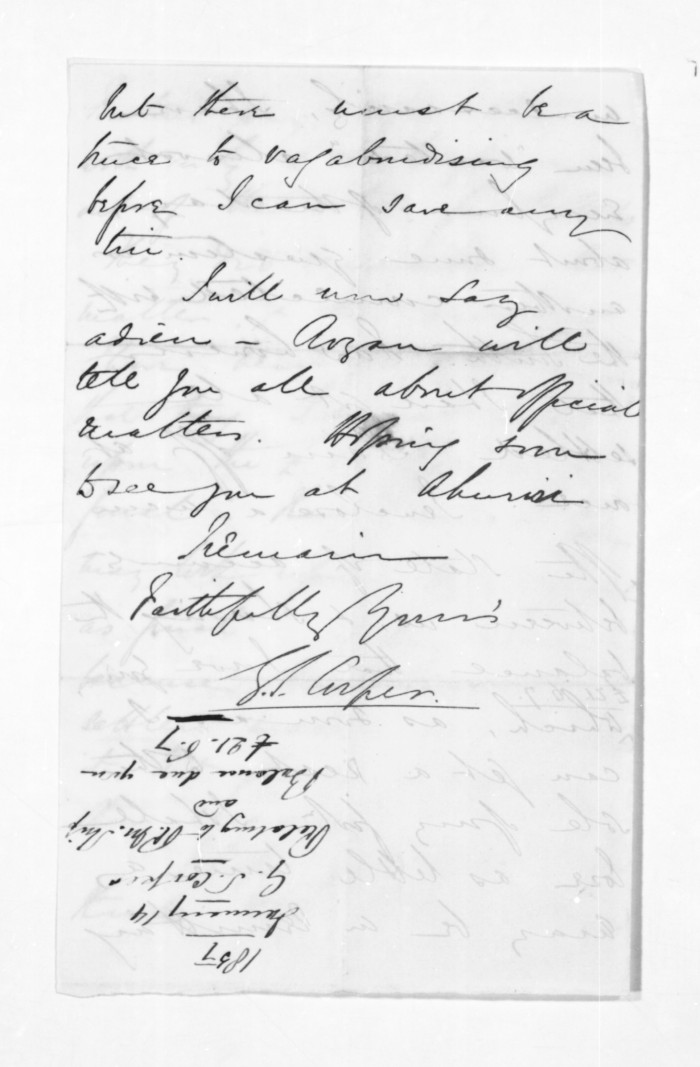 but there must be a
truce to vagabondising
before I can save any
tin.
I will now say
adieu –  will
tell you all about official
matters. Hoping soon
to see you at Ahuriri
I remain
Faithfully Yours
G. S. Cooper.
1857
January 14
G. S. Cooper
Relating to
and
Balance due you
£21.6.7